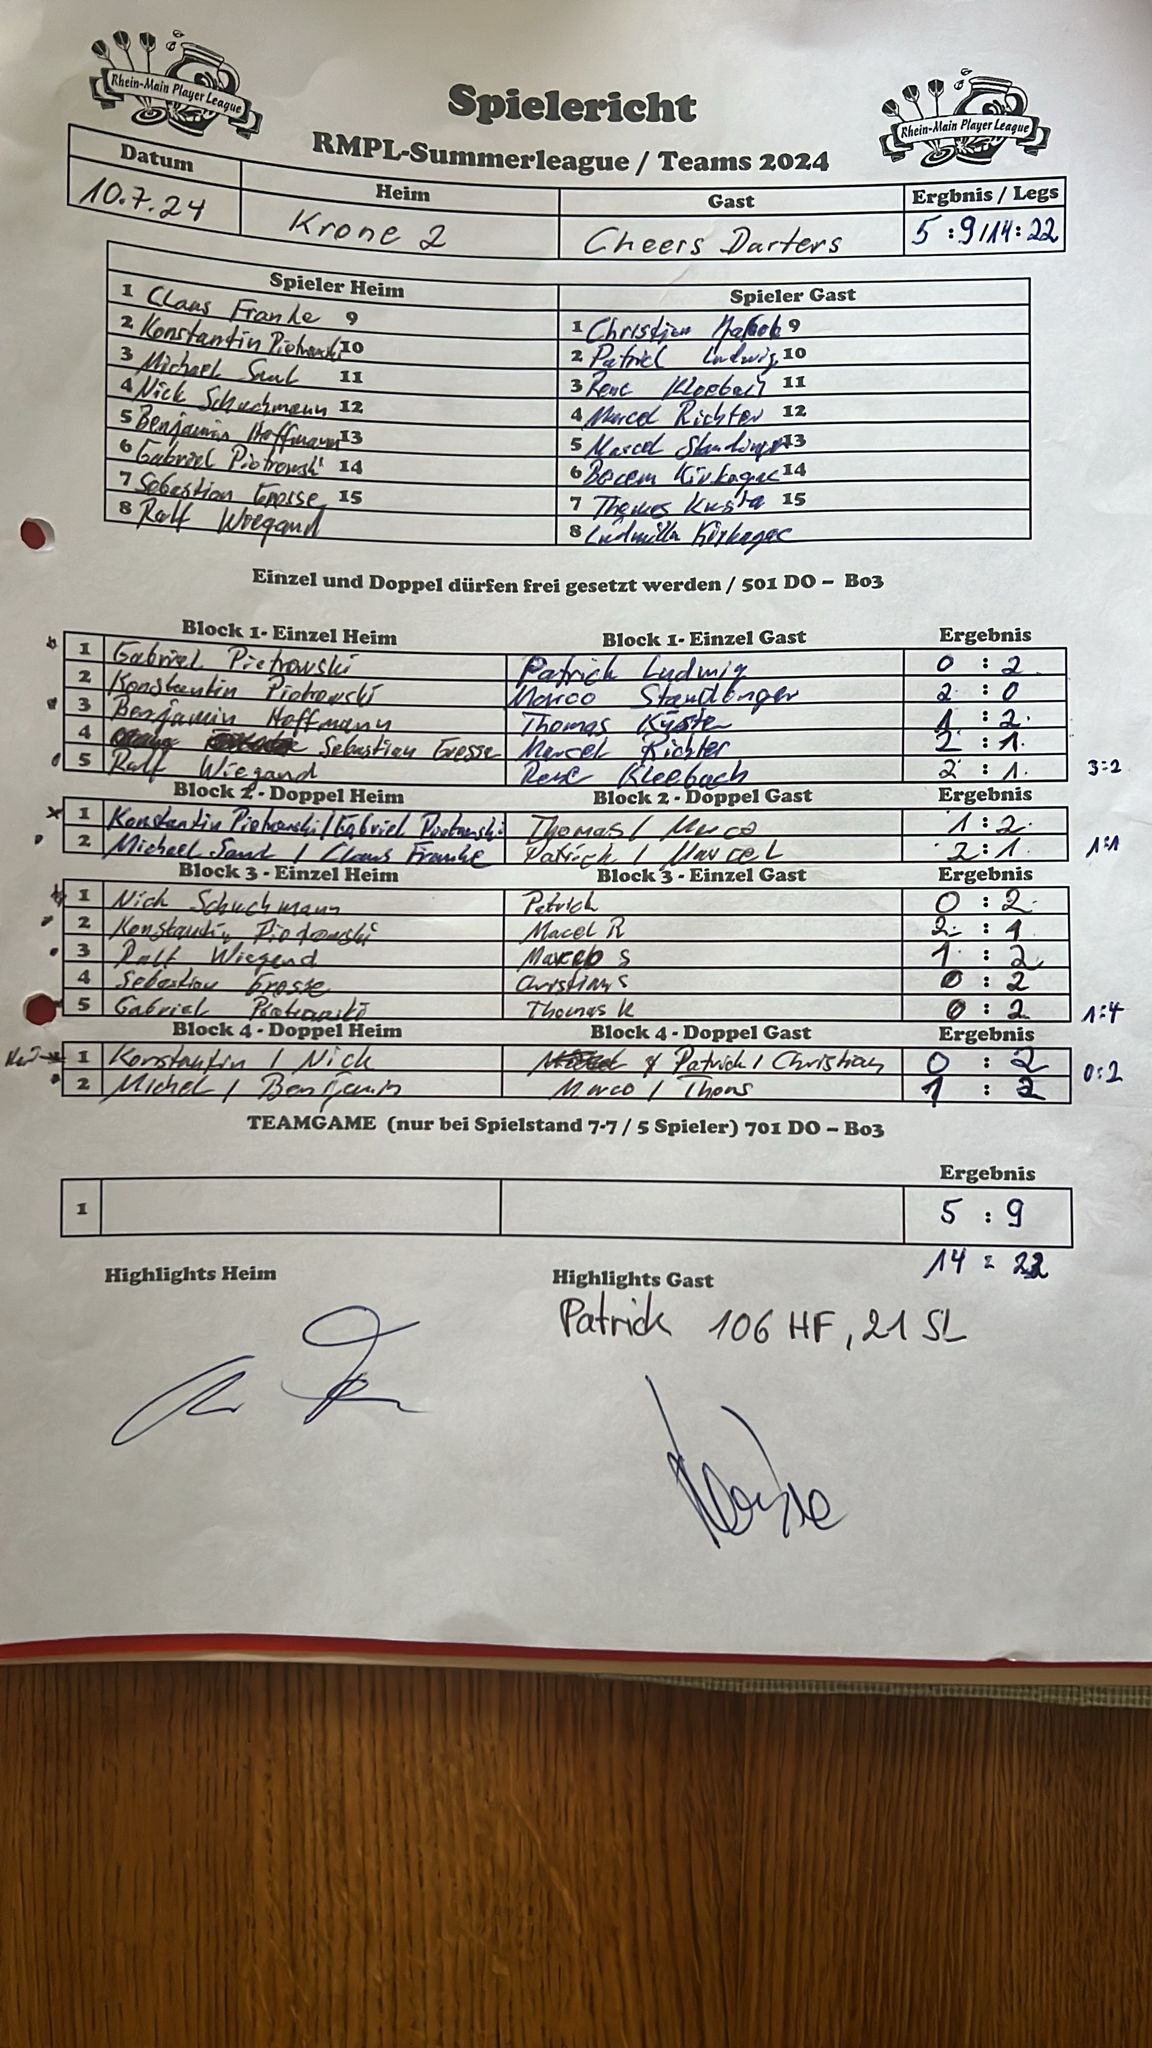 Rhein-Main Player League
Rhein-Main Player League
Spielericht
RMPL-Summerleague / Teams 2024
Datum Heim Gast Ergbnis / Legs
10.7.24 Krone 2 Cheers Darters 5 : 9 / 14 : 22
Spieler Heim Spieler Gast
1 Claus Franke 9 1 Christian 9
2 Konstantin Piotrowski 10 2 Patrick Ludwig 10
3 Michael 11 3 Rene Kleebach 11
4 Nick Schuchmann 12 4 Marcel Richter 12
5 Benjamin Hoffmann 13 5 13
6 Gabriel Piotrowski 14 6 14
7 Sebastian Grosse 15 7 Thomas 15
8 Ralf Wiegand 8 Ludmilla
Einzel und Doppel dürfen frei gesetzt werden / 501 DO – Bo3
Block 1- Einzel Heim Block 1- Einzel Gast Ergebnis
1 Gabriel Piotrowski Patrick Ludwig 0 : 2
2 Konstantin Piotrowski Marco 2 : 0
3 Benjamin Hoffmann Thomas 1 : 2
4 Sebastian Grosse Marcel Richter 2 : 1
5 Ralf Wiegand Rene Kleebach 2 : 1 3:2
Block 2 - Doppel Heim Block 2 - Doppel Gast Ergebnis
1 Konstantin Piotrowski / Gabriel Piotrowski Thomas / Marco 1 : 2
2 Michael / Claus Franke Patrick / Marcel 2 : 1 1:1
Block 3 - Einzel Heim Block 3 - Einzel Gast Ergebnis
1 Nick Schuchmann Patrick 0 : 2
2 Konstantin Piotrowski Macel R 2 : 1
3 Ralf Wiegand S 1 : 2
4 Sebastian Grosse 0 : 2
5 Gabriel Piotrowski Thomas K 0 : 2 1:4
Block 4 - Doppel Heim Block 4 - Doppel Gast Ergebnis
1 Konstantin / Nick Patrick / Christian 0 : 2
2 Michel / Benjamin Marco / Thoms 1 : 2 0:2
TEAMGAME (nur bei Spielstand 7-7 / 5 Spieler) 701 DO – Bo3
Ergebnis
1 5 : 9
14 : 22
Highlights Heim Highlights Gast
Patrick 106 HF, 21 SL